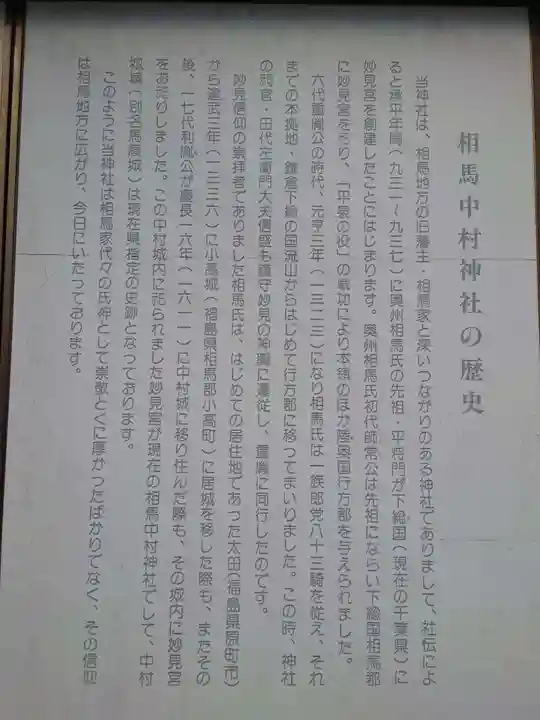 相馬中村神社の歴史
当神社は、相馬地方の旧藩主・相馬家と深いつながりのある神社でありまして、社伝によ
ると承平年間(九三一〜九三七)に奥州相馬氏の先祖・平将門が下総国(現在の千葉県)に
妙見宮を創建したことにはじまります。奥州相馬氏初代師常公は先祖にならい下総国相馬郡
に妙見宮を祀り、「平泉の役」の戦功により本領のほか陸奥国行方郡を与えられました。
六代重胤公の時代、元亨三年(一三二三)になり相馬氏は一族郎党八十三騎を従え、それ
までの本拠地・鎌倉下総の国流山からはじめて行方郡に移つてまいりました。この時、神社
の祠官・田代左衛門大夫信盛も護守妙見の神輿に遷従し、重胤に同行したのです。
妙見信仰の崇拝者でありました相馬氏は、はじめての居住地であった太田(福島県原町市)
から建武三年(一三三六)に小高城(福島県相馬郡小高町)に居城を移した際も、またその
後、一七代利胤公が慶長一六年(一六一一)に中村城に移り住んだ際も、その城内に妙見宮
をお祀りしました。この中村城内に祀られました妙見宮が現在の相馬中村神社でして、中村
城墟(別名馬陵城)は現在県指定の史跡となつております。
このように当神社は相馬家代々の氏神として崇敬とくに厚かつたばかりでなく、その信仰
は相馬地方に広がり、今日にいたっております。